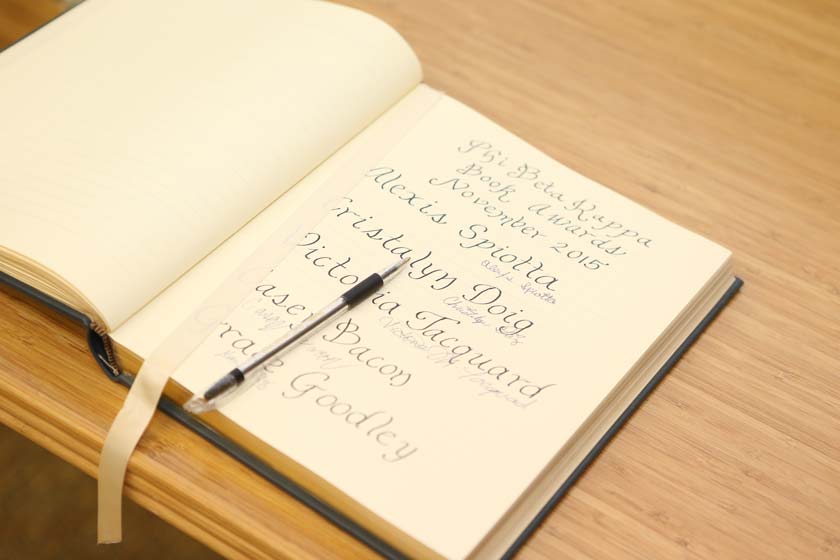 Phi Beta Kappa
Book Awards
November 2015
Alexis Spiotta
Alexis Spiotta
Cristalyn Doig
Victoria Jacquard
Casey Bacon
Grace Goodley